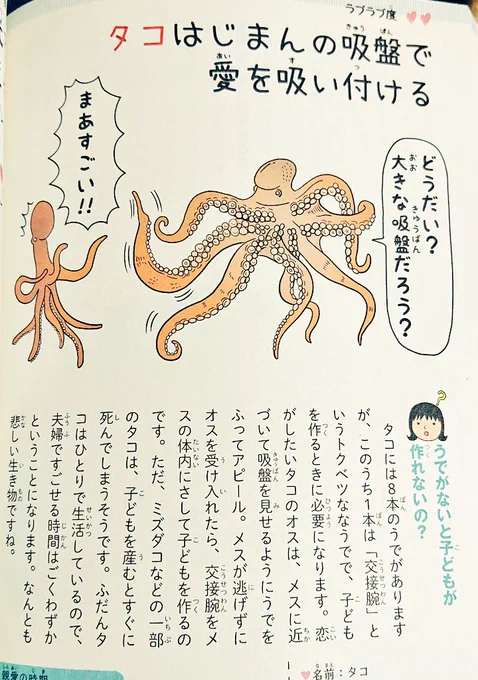 ラブラブ度
タコはじまんの吸盤で
愛を吸い付ける
どうだい？
大きな吸盤だろう？
まあすごい!!
うでがないと子どもが
作れないの？
タコには8本のうでがあります
が、このうち1本は「交接腕」と
いうトクベツなうでで、子ども
を作るときに必要になります。恋
がしたいタコのオスは、メスに近
づいて吸盤を見せるようにうでを
ふってアピール。メスが逃げずに
オスを受け入れたら、交接腕をメ
スの体内にさして子どもを作るの
です。ただ、ミズダコなどの一部
のタコは、子どもを産むとすぐに
死んでしまうそうです。ふだんタ
コはひとりで生活しているので、
夫婦ですごせる時間はごくわずか
ということになります。なんとも
悲しい生き物ですね。
名前：タコ
親愛の時期